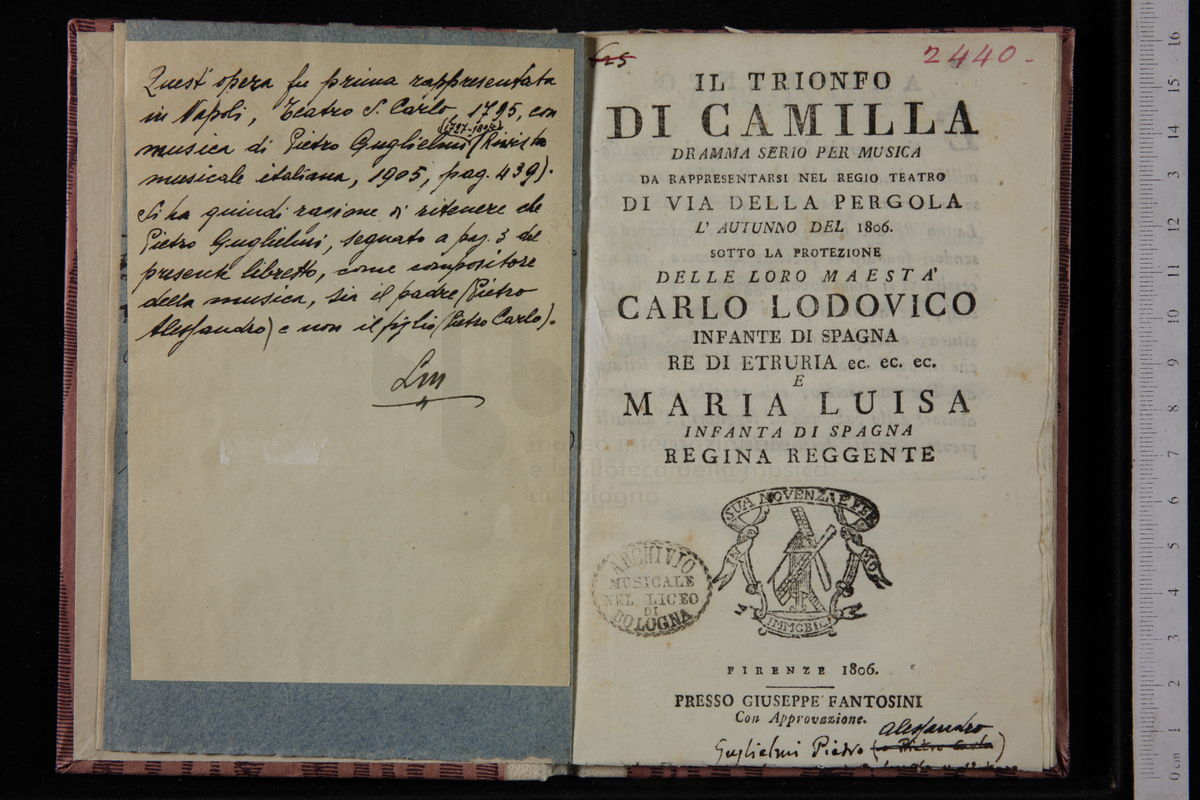 Quest' opera fu prima rappresentata
in Napoli, Teatro S. Carlo, 1795, con
(1727-1804)
musica di Pietro Guglielmi (Rivista
musicale italiana, 1905, pag. 439).
Si ha quindi ragione di ritenere che
Pietro Guglielmi, segnato a pag. 3 del
presente libretto, come compositore
della musica, sia il padre (Pietro
Alessandro) e non il figlio (Pietro Carlo).
2440-
IL TRIONFO
DI CAMILLA
DRAMMA SERIO PER MUSICA
DA RAPPRESENTARSI NEL REGIO TEATRO
DI VIA DELLA PERGOLA
L' AUTUNNO DEL 1806.
SOTTO LA PROTEZIONE
DELLE LORO MAESTA'
CARLO LODOVICO
INFANTE DI SPAGNA
RE DI ETRURIA ec. ec. ec.
E
MARIA LUISA
INFANTA DI SPAGNA
REGINA REGGENTE
museo internazionale
e biblioteca della musica
di bologna
IN SUA MOVENZA E FERMO
IMMOBILI
ARCHIVIO
MUSICALE
NEL LICEO
DI
BOLOGNA
FIRENZE 1806.
PRESSO GIUSEPPE FANTOSINI
Con Approvazione.
Alessandro
Guglielmi Pietro (o Pietro Carlo)
16
15
14
13
12
11
10
9
8
7
6
5
4
3
2
1
0 cm